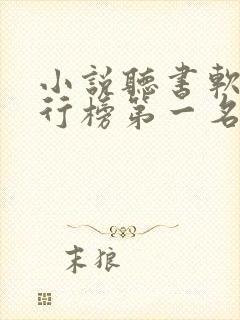 小說聽書軟
行榜第一名
末狼